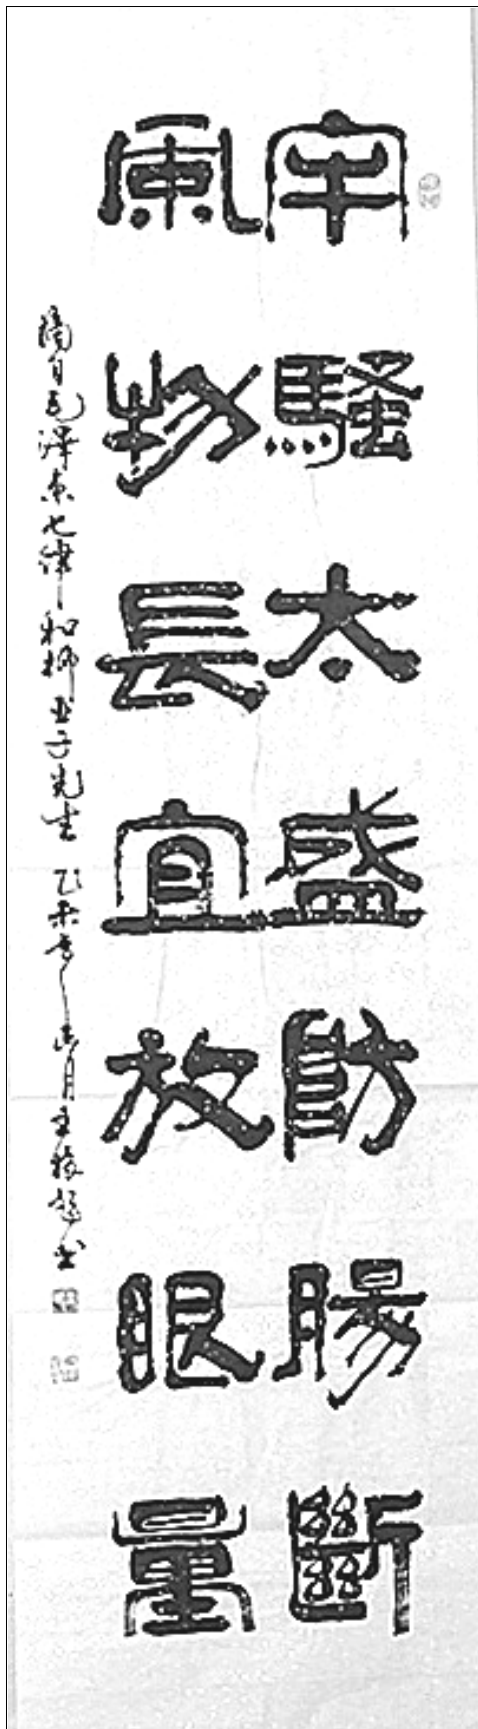 牢騷太盛防腸斷
風物長宜放眼量
摘自毛澤东七律一和柳亚子先生 乙未年 月王 书